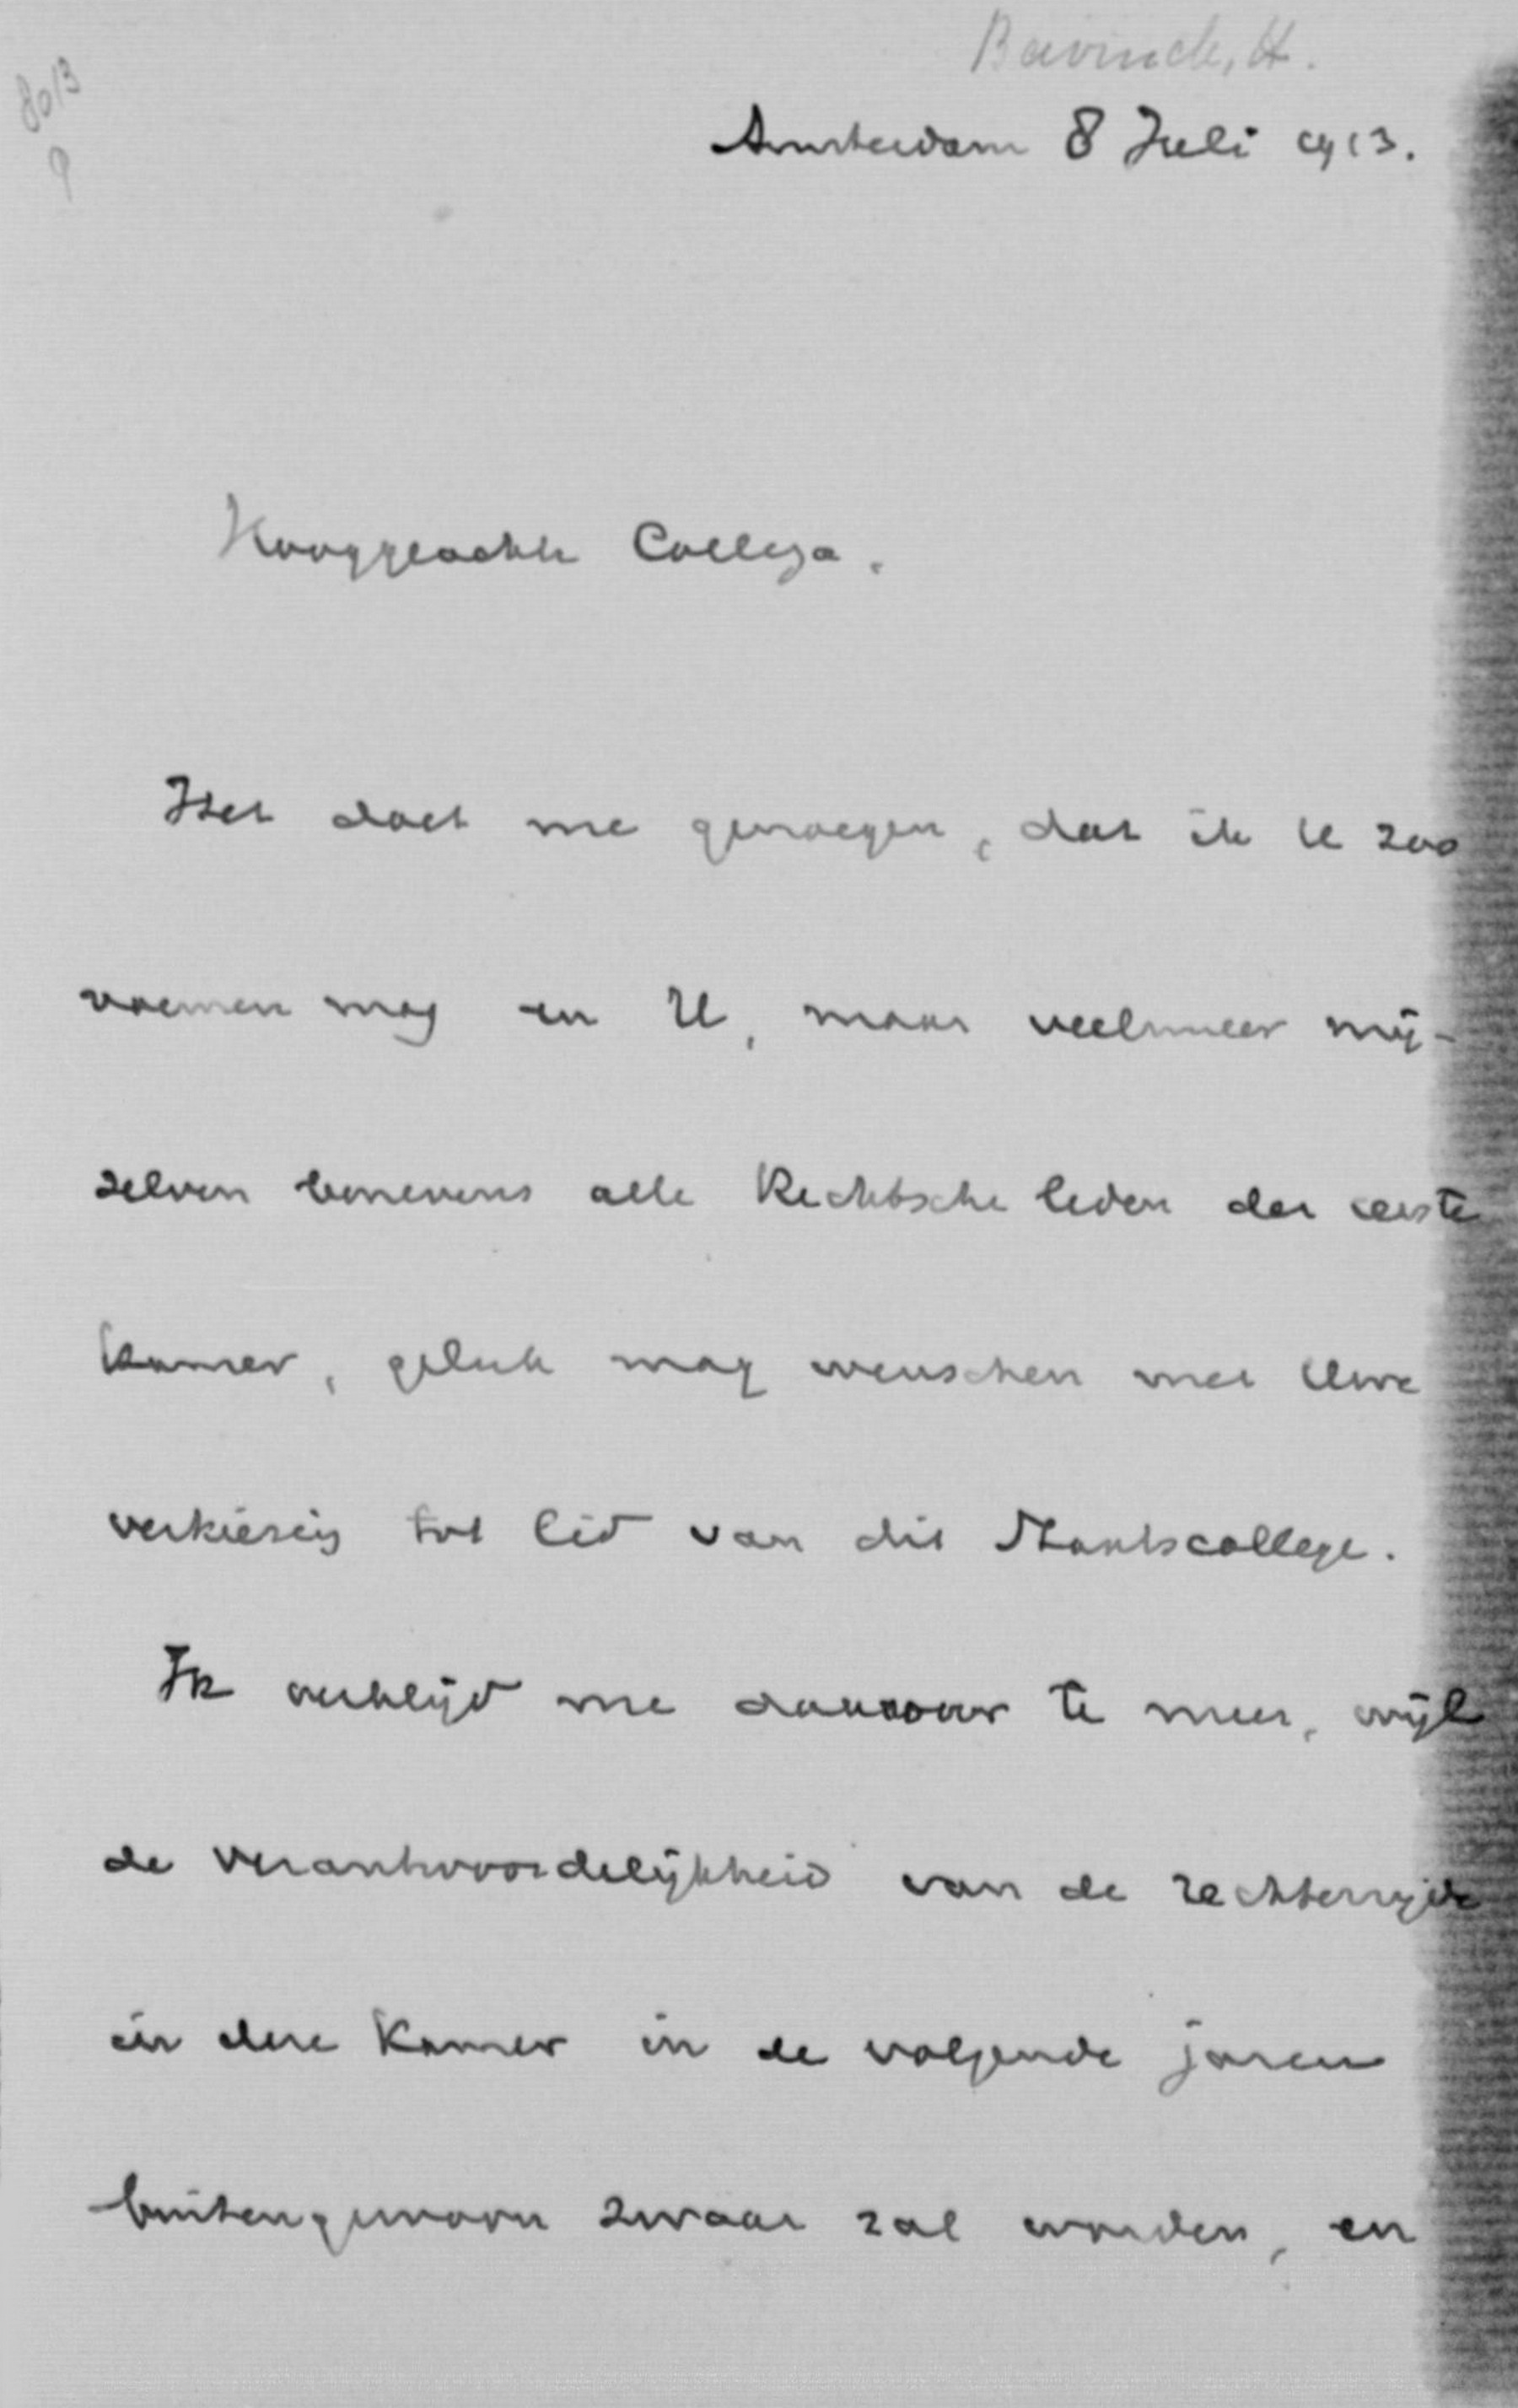 Bavinck, H.
8013
9
Amsterdam 8 Juli 1913.
Hooggeachte Collega.
Het doet me genoegen, dat ik U zoo
noemen mag en U, maar veelmeer mij-
zelven benevens alle Rechtsche leden der eerste
kamer, geluk mag wenschen met Uwe
verkiezing tot lid van dit Staatscollege.
Ik verblijd me daarover te meer, wijl
de verantwoordelijkheid van de rechterzijde
in deze Kamer in de volgende jaren
buitengewoon zwaar zal worden, en